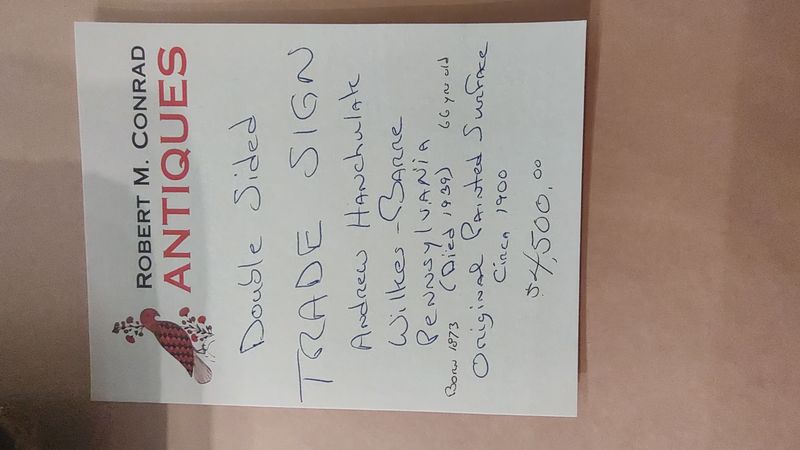 ROBERT M. CONRAD
ANTIQUES
Double Sided
TRADE SIGN
Andrew Hanchulate
Wilkes-Barre
Pennsylvania
Born 1873 (Died 1939) 66 yrs old
Original Painted Surface
Circa 1900
$4,500.00